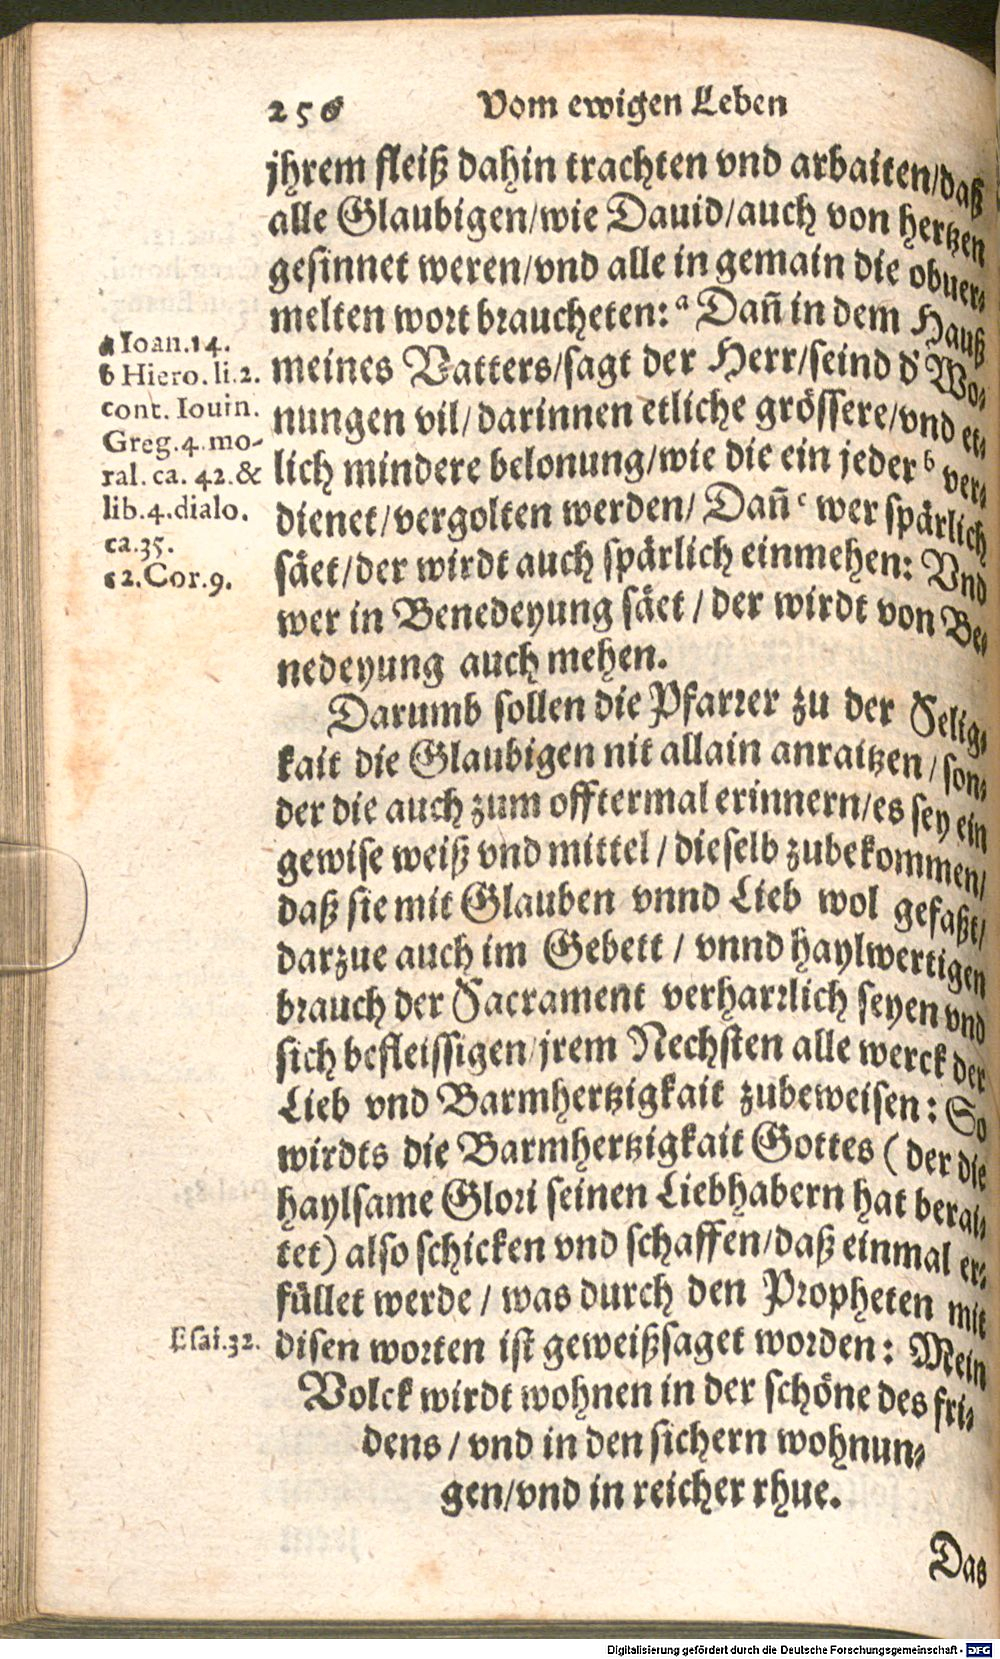 256 Vom ewigen Leben
jhrem fleiß dahin trachten vnd arbaiten/daß
alle Glaubigen/wie Dauid/auch von hertzen
gesinnet weren/vnd alle in gemain die obuer⸗
melten wort braucheten: a Dañ in dem Hauß
meines Vatters/sagt der Herr/seind d' Wo⸗
nungen vil/darinnen etliche grössere/vnd et⸗
lich mindere belonung/wie die ein jeder b ver⸗
dienet/vergolten werden/ Dañ c wer spärlich
säet/der wirdt auch spärlich einmehen: Vnd
wer in Benedeyung säet / der wirdt von Be⸗
nedeyung auch mehen.
a Ioan.14.
b Hiero. li.2.
cont. Iouin.
Greg.4.mo-
ral. ca. 42.&
lib.4.dialo.
ca.35.
c 2.Cor.9.
Darumb sollen die Pfarrer zu der Selig⸗
kait die Glaubigen nit allain anraitzen / son⸗
der die auch zum offtermal erinnern/es sey ein
gewise weiß vnd mittel / dieselb zubekommen/
daß sie mit Glauben vnnd Lieb wol gefaßt/
darzue auch im Gebett / vnnd haylwertigen
brauch der Sacrament verharrlich seyen vnd
sich befleissigen/jrem Nechsten alle werck der
Lieb vnd Barmhertzigkait zubeweisen: So
wirdts die Barmhertzigkait Gottes ( der die
haylsame Glori seinen Liebhabern hat berai⸗
tet) also schicken vnd schaffen/daß einmal er⸗
füllet werde / was durch den Propheten mit
disen worten ist geweißsaget worden: Mein
Volck wirdt wohnen in der schöne des fri⸗
dens / vnd in den sichern wohnun⸗
gen/vnd in reicher rhue.
Esai.32.
Das
Digitalisierung gefördert durch die Deutsche Forschungsgemeinschaft - DFG